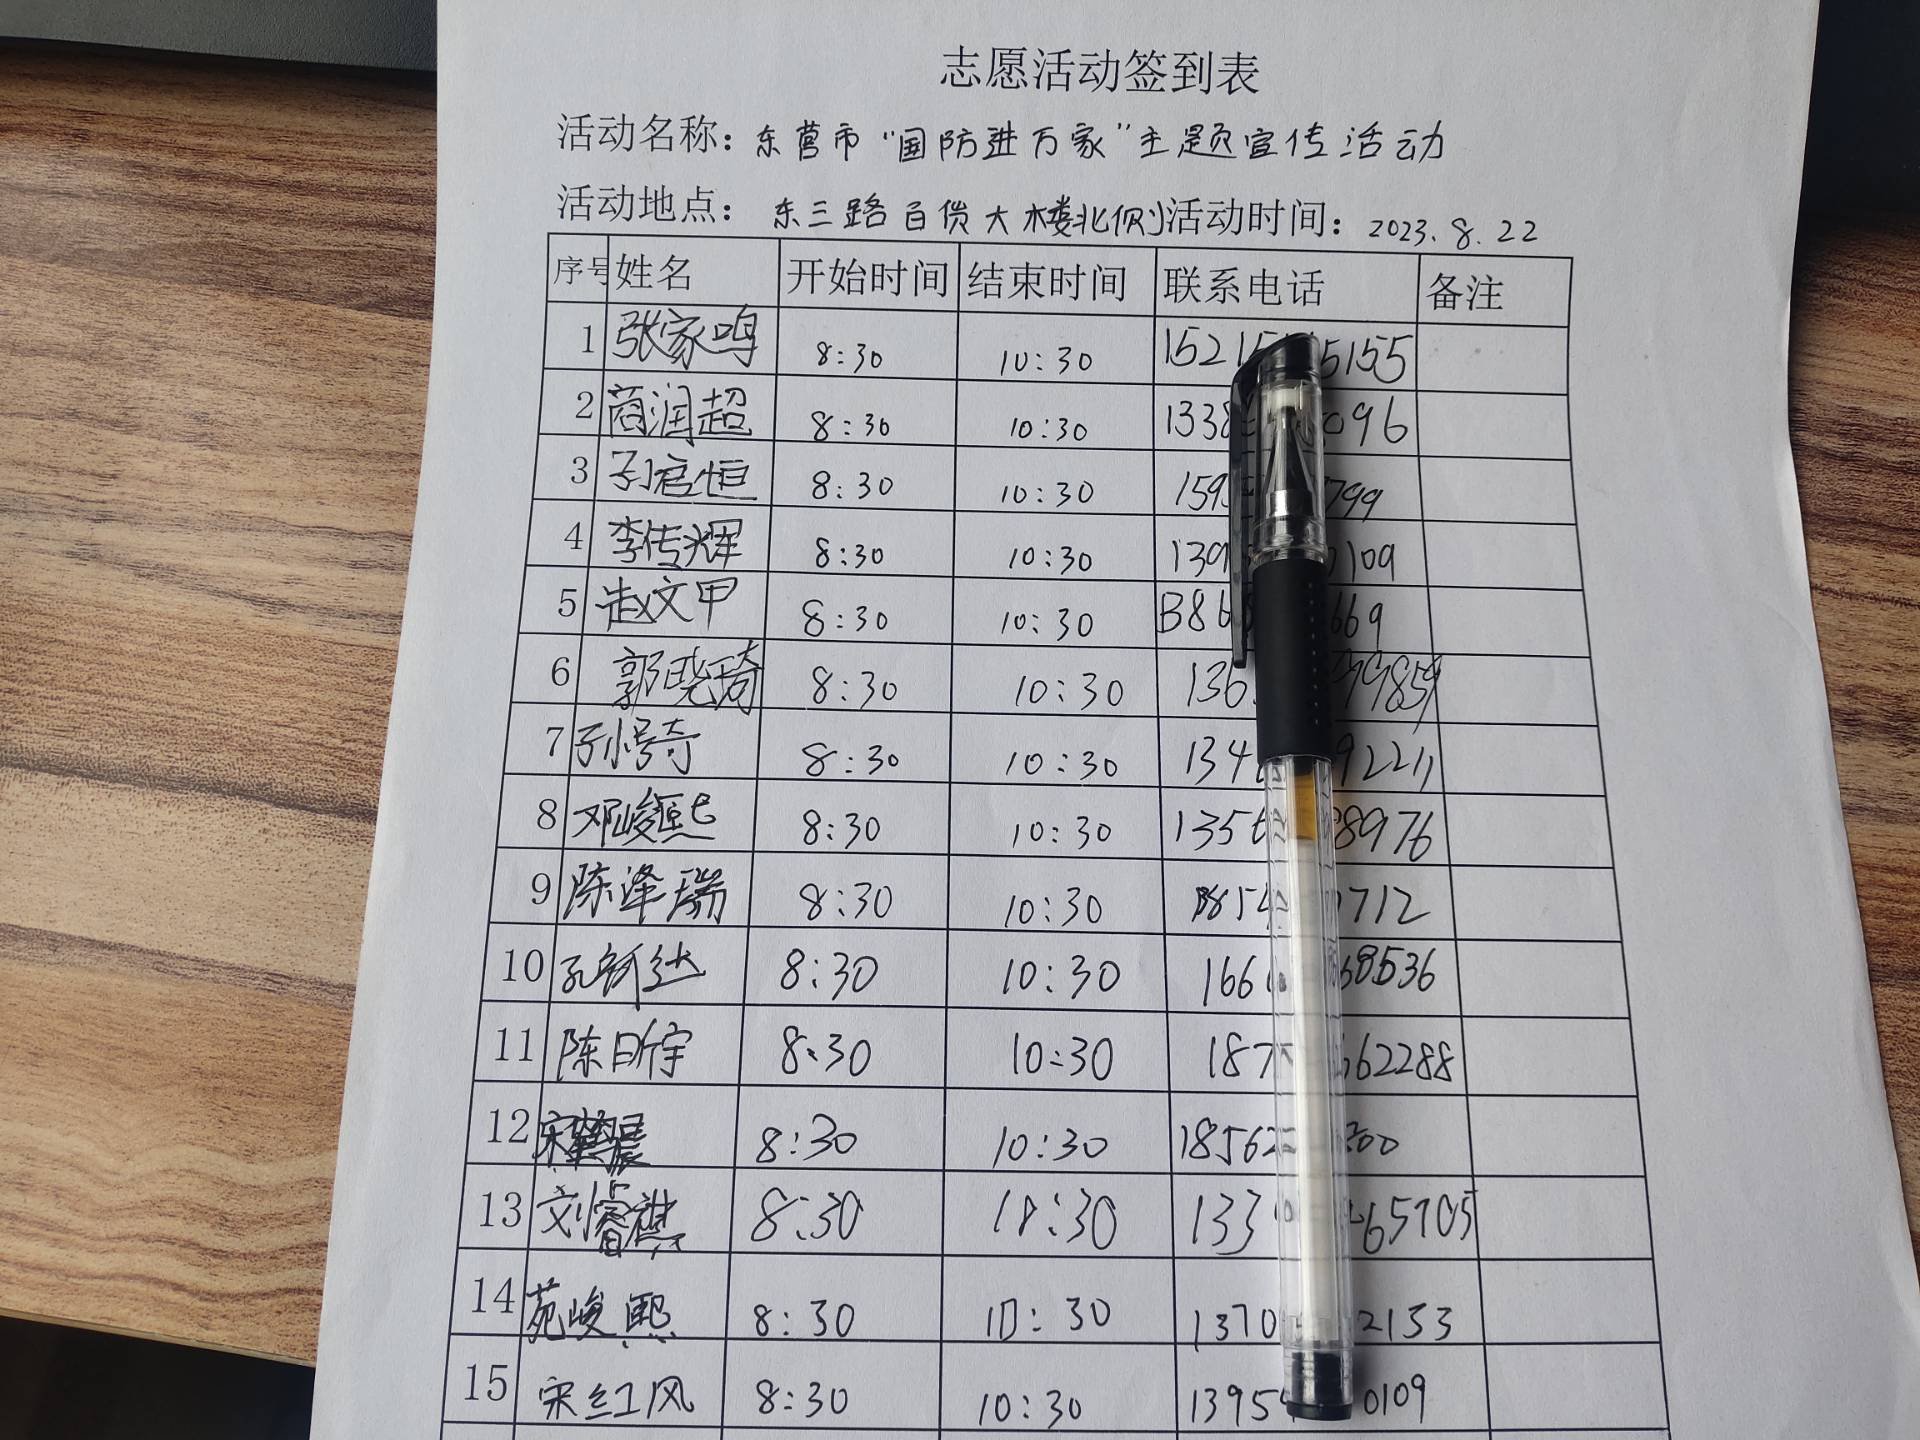 志愿活动签到表
活动名称：东营市“国防进万家”主题宣传活动
活动地点：东三路百货大楼北侧 活动时间：2023.8.22
序号 姓名 开始时间 结束时间 联系电话 备注
1 张家鸣 8:30 10:30 1521 5155
2 商润超 8:30 10:30 1338 096
3 孙启恒 8:30 10:30 159 799
4 李传辉 8:30 10:30 139 109
5 赵文甲 8:30 10:30 1386 669
6 郭晓琦 8:30 10:30 136 99859
7 8:30 10:30 134 92211
8 邓峻熙 8:30 10:30 1356 8976
9 陈泽瑞 8:30 10:30 1385 712
10 8:30 10:30 166 68536
11 陈昕宇 8:30 10:30 187 62288
12 8:30 10:30 18562 200
13 刘睿祺 8:30 10:30 133 65705
14 苑峻熙 8:30 10:30 1370 2133
15 宋红风 8:30 10:30 1395 0109